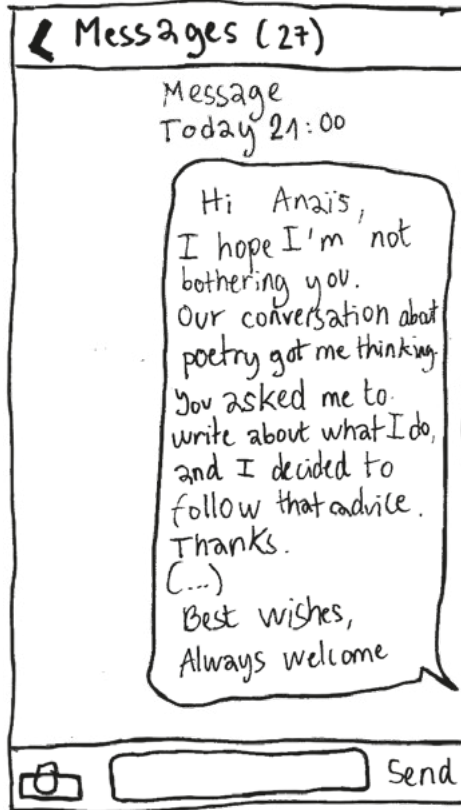 Messages (27)
Message
Today 21:00
Hi Anaïs,
I hope I'm not
bothering you.
Our conversation about
poetry got me thinking.
You asked me to
write about what I do,
and I decided to
follow that advice.
Thanks.
(...)
Best wishes,
Always welcome
Send